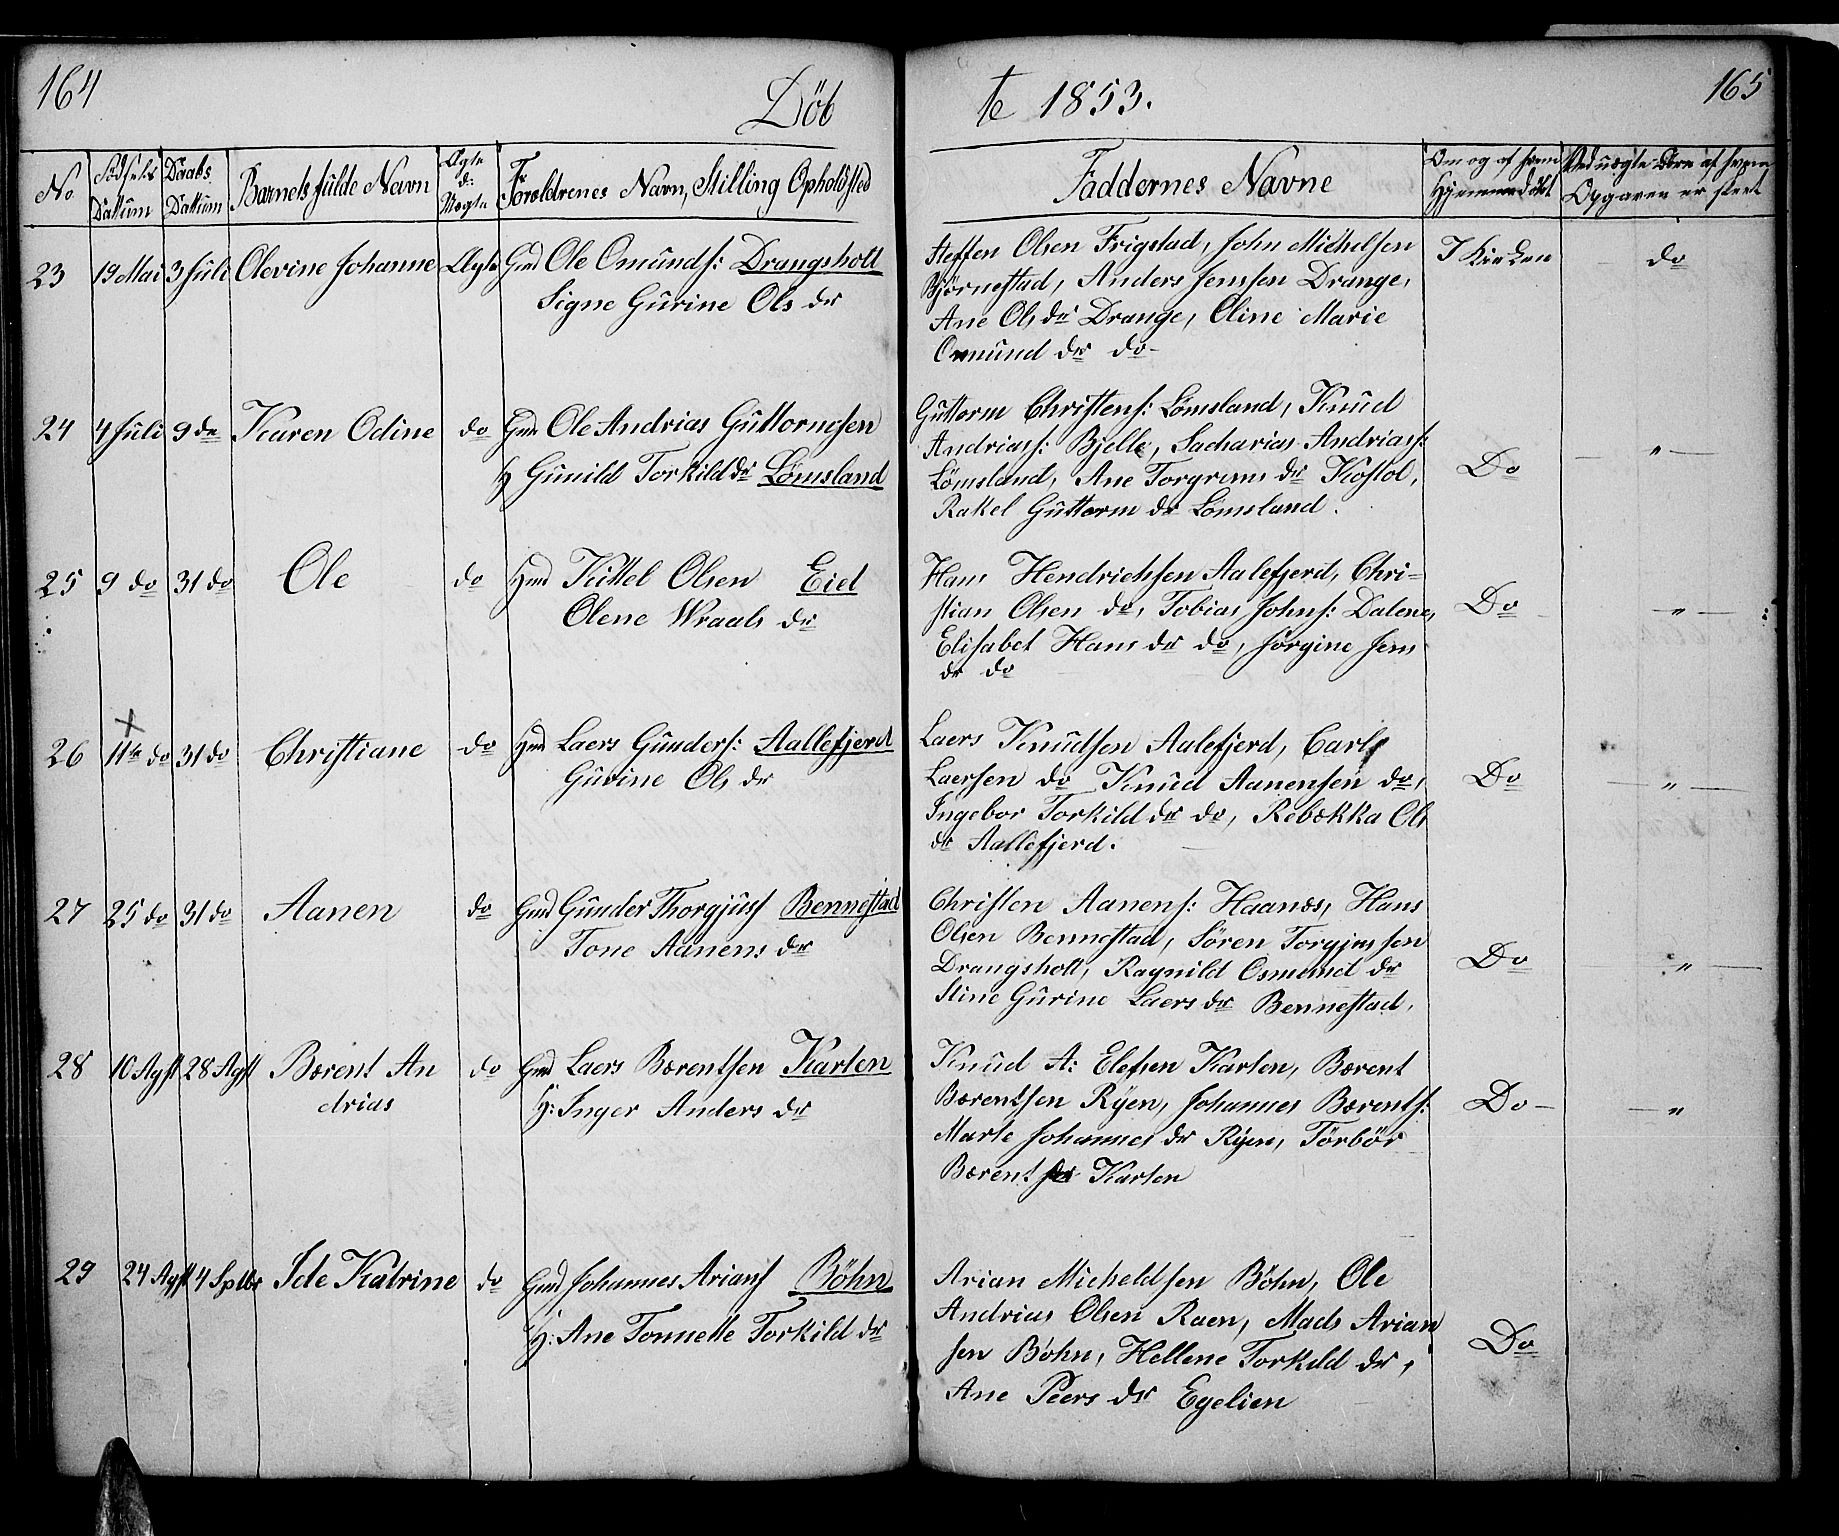 164
Döb
te 1853.
165
No
Födsels Dattum
Daabs Dattum
Barnets fulde Navn
Ægte el: Uægte
Forældrenes Navn, Stilling Opholdsted
Faddernes Navne
Om og af hvem Hjemmedöbt
Ved uægte Börn af hvem Opgaven er skeet
23 19 Mai 3 Juli Olevine Johanne Ægte Gmd Ole Omunds: Drangsholt
Signe Gurine Ols dr
Steffen Olsen Frigstad, John Michelsen
Bjørnestad, Anders Jenssen Drange,
Ane Ols dr Drange, Eline Marie
Omund dr do
I Kirken do
24 4 Juli 9 de Karen Odine do Gmd Ole Andrias Guttormsen
H Gunild Torkild dr Lømsland
Guttorm Christens: Lømsland, Knud
Andrias: Bjelle, Sacharias Andrias:
Lømsland, Ane Torgrims dr Kostol,
Rakel Guttorm dr Lomsland.
Do "
25 9 do 31 do Ole do Hmd Kittel Olsen Eid
Olene Wraals dr
Hans Hendrichsen Aalefjerd, Chri=
stian Olsen do, Tobias Johns: Dalene,
Elisabet Hans dr do, Jørgine Jens
dr do
Do "
26 11te do 31 do Christiane do Hmd Laers Gunders: Aallefjerd
Gurine Ols dr
Laers Knudsen Aalefjerd, Carl
Laerssen do Knud Aanensen do,
Ingebor Torkild dr do, Rebækka Ols
dr Aallefjerd.
Do "
27 25 do 31 do Aanen do Gmd Gunder Thorgjuss Bennestad
Tone Aanens dr
Christen Aanens: Haanæs, Hans
Olsen Bennestad, Søren Torgjussen
Drangsholt, Ragnild Osmund dr
Stine Gurine Laers dr Bennestad,
Do "
28 10 Agst 28 Agst Bærent An
drias
do Gmd Laers Bærentsen Karten
H: Inger Anders dr
Knud A: Elefsen Karten, Bærent
Bærentsen Ryen, Johannes Bærents:
Marte Johannes dr Ryen, Törbör
Bærents dr Karten
Do "
29 24 Agst 4 Sptbr Ide Katrine do Gmd Johannes Arians Böhn
H: Ane Tonnette Torkild dr
Arian Micheldsen Böhn, Ole
Andrias Olsen Raen, Mads Arian
sen Bøhn, Hellene Torkild dr,
Ane Peers dr Egelien
Do